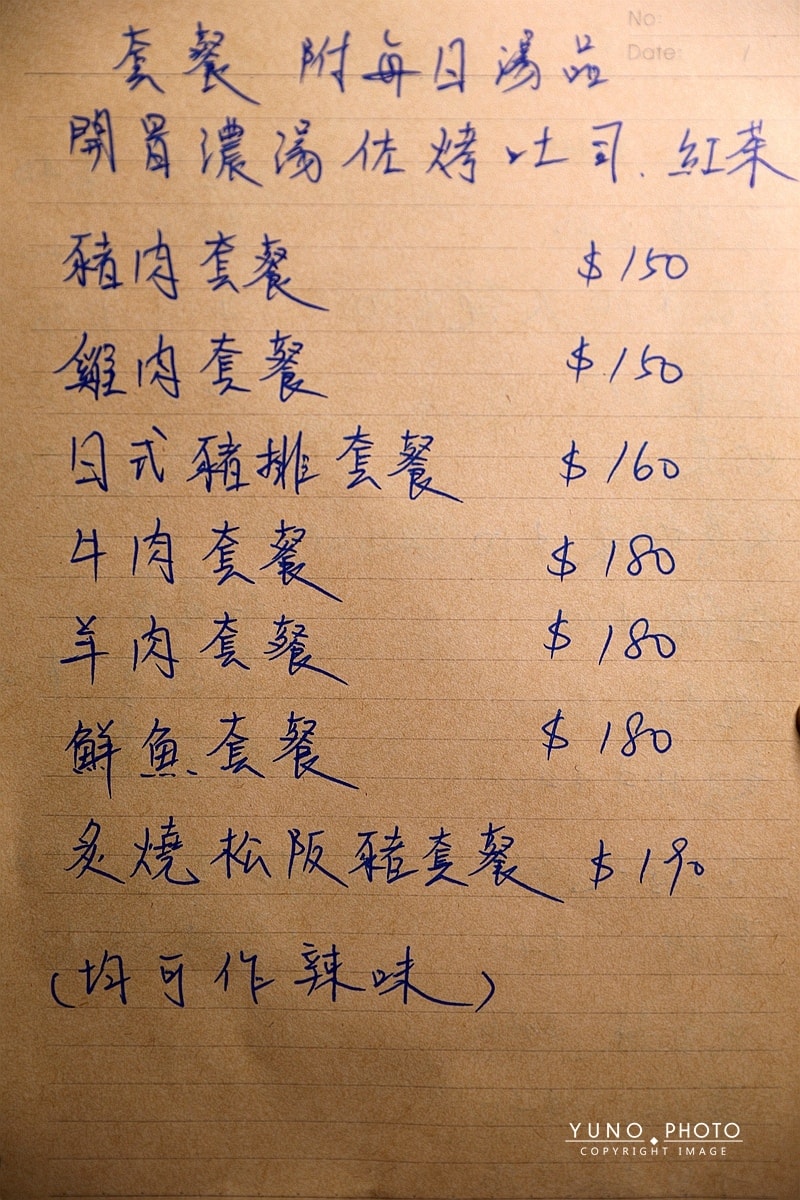 No:
Date: /
套餐 附每日湯品
開胃濃湯佐烤吐司、紅茶
豬肉套餐 $150
雞肉套餐 $150
日式豬排套餐 $160
牛肉套餐 $180
羊肉套餐 $180
鮮魚套餐 $180
炙燒松阪豬套餐 $190
(均可作辣味)
YUNO PHOTO
COPYRIGHT IMAGE